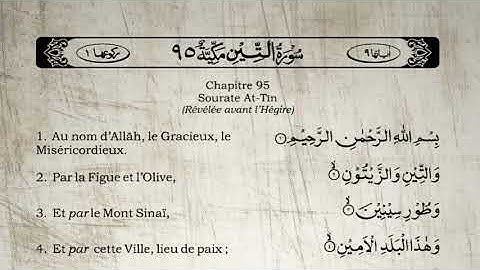 اٰیاتھا ۹ سُوْرَةُ التِّيْنِ مَكِّيَّةٌ ۹۵ رکوعھا ۱
Chapitre 95
Sourate At-Tin
(Révélée avant l’Hégire)
1. Au nom d’Allâh, le Gracieux, le
Miséricordieux.
بِسْمِ اللّٰهِ الرَّحْمٰنِ الرَّحِيْمِ ۝۱
2. Par la Figue et l’Olive,
وَالتِّيْنِ وَالزَّيْتُوْنِ ۝۲
3. Et par le Mont Sinaï,
وَطُوْرِ سِيْنِيْنَ ۝۳
4. Et par cette Ville, lieu de paix ;
وَهٰذَا الْبَلَدِ الْاَمِيْنِ ۝۴